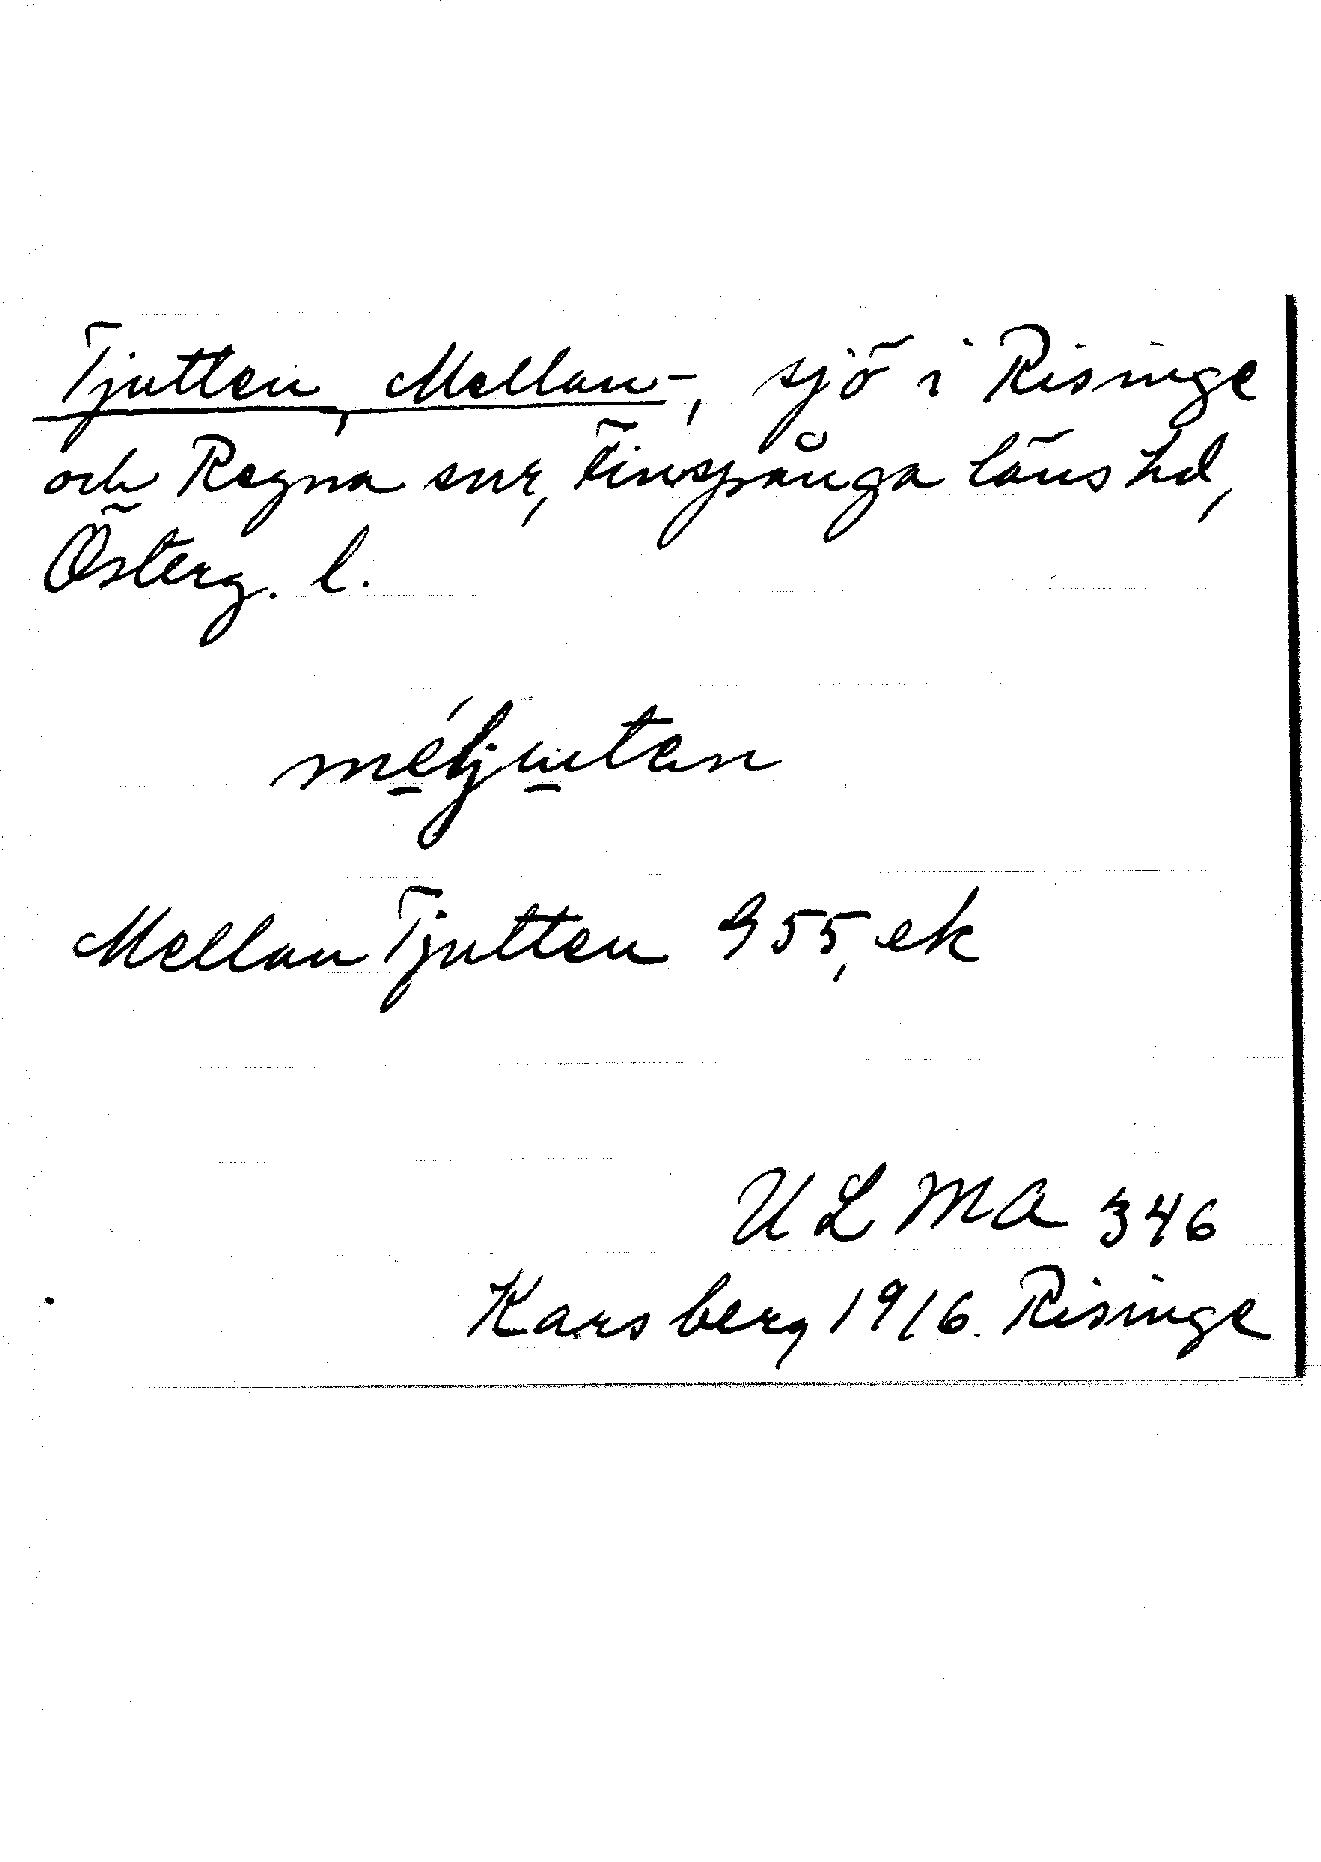 Tjutten, Mellan-, sjö i Risinge
och Regna snr, Finspånga läns hd,
Österg. l.
Mellan Tjutten G 55, ek
ULMA 346
Karsberg 1916. Risinge